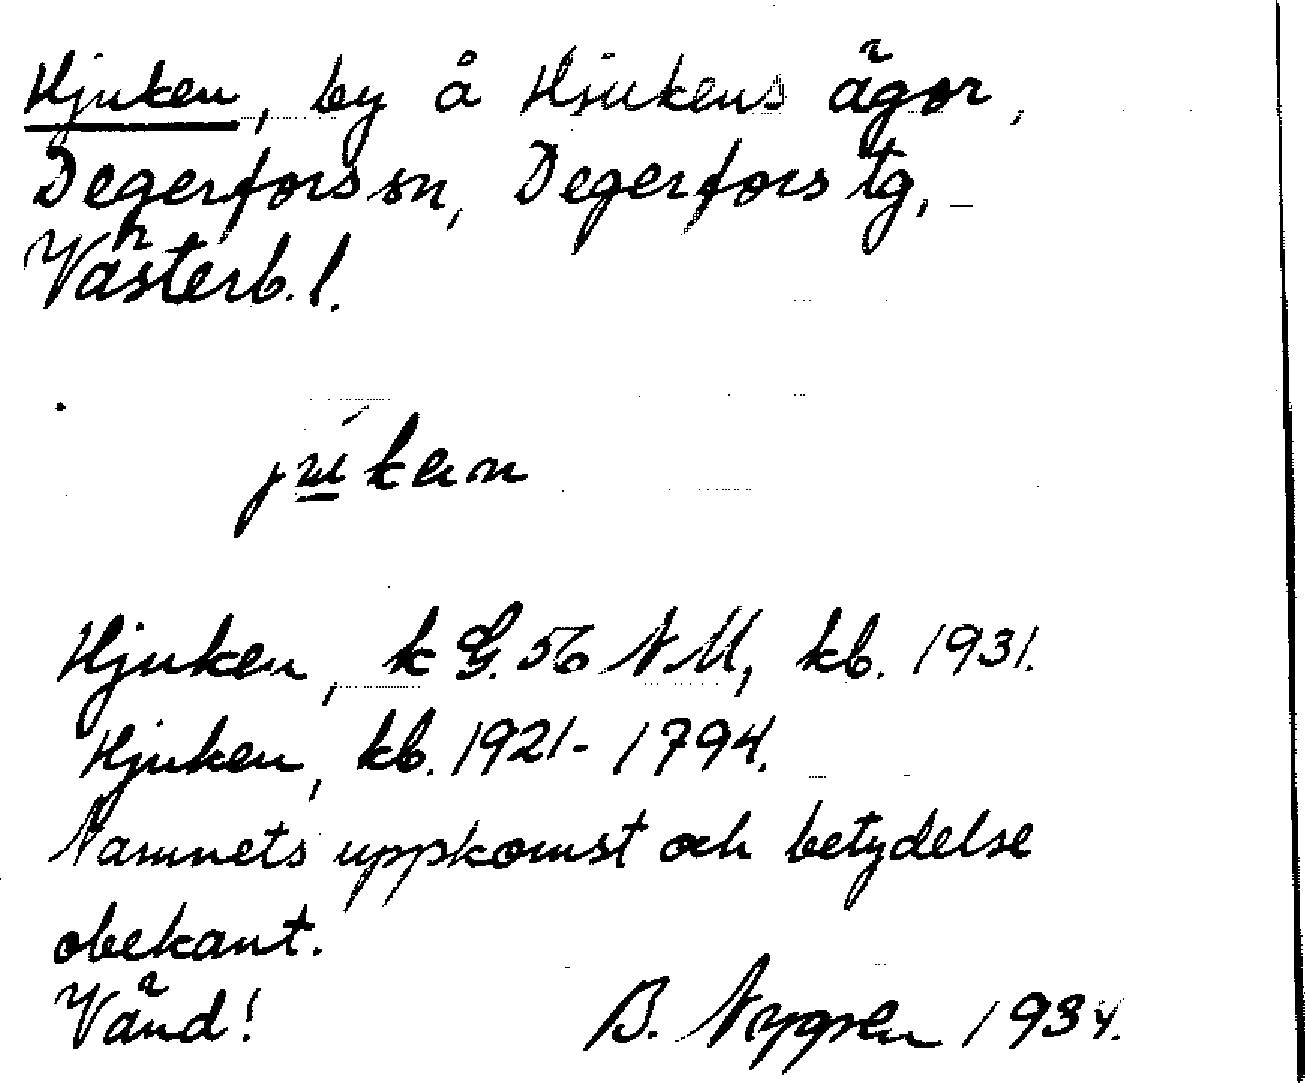 Hjuken, by å Hjukens ägor,
Degerfors sn, Degerfors tg,
Västerb. l.
Hjuken, k G. 56 NM, kb. 1931.
Hjuken, kb. 1921-1794.
Namnets uppkomst och betydelse
obekant.
Vänd!
B. Nygren 1934.